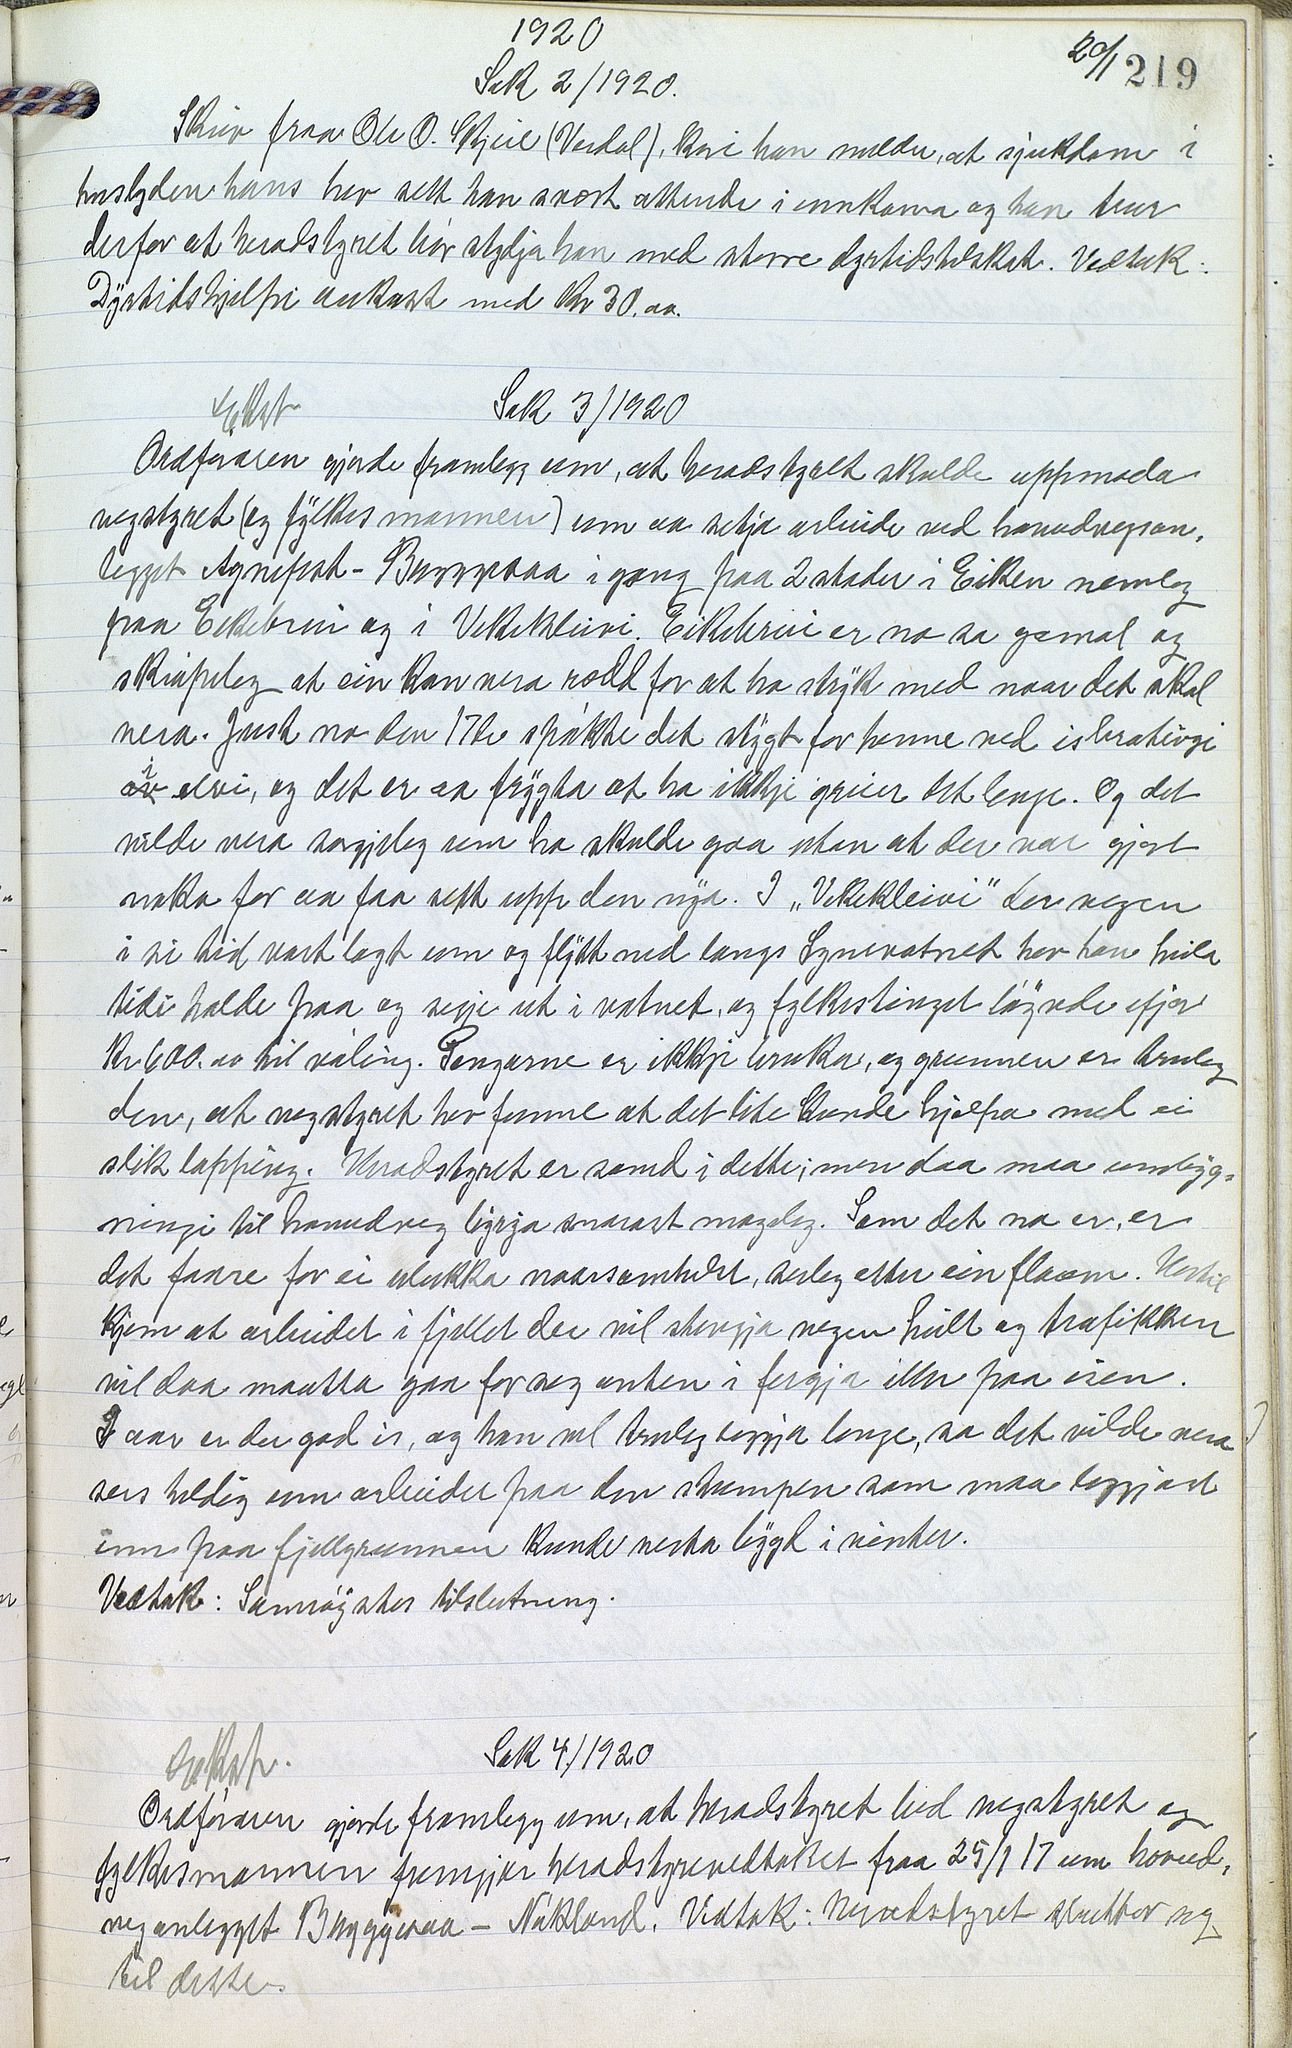 1920
20/1 219
Sak 2/1920.
Skriv fraa Ole O. Skjeie (Verdal), kori han melder, at sjukdom i
huslyden hans hev sett han svært attende i innkoma og han trur
derfor at heradstyret bør stydja han med større dyrtidstilskot. Vedtak:
Dyrtidshjelpi aukast med Kr 30.00.
Sak 3/1920
Ordføraren gjorde framlegg um, at heradstyret skulde uppmoda
vegstyret (og fylkesmannen) um aa setja arbeide ved hovudvegsan-
legget Agnefest - Byggjesaa i gong paa 2 stader i Eiken nemleg
paa Eikebrui og i Vekekleivi. Eikebrui er no so gomol og
skrøpeleg at ein kan vera rædd for at ho stryk med naar det skal
vera. Just no den 17de spøkte det stygt for henne ved isbrøtingi
i elvi, og det er aa frygta at ho ikkje greier det lenge. Og det
vilde vera sorgjeleg um ho skulde gaa utan at der var gjort
noko for aa faa sett upp den nya. I „Vekekleivi" der vegen
i si tid vart lagt um og flytt ned langs Lynevatnet hev han heile
tidi halde paa og sigje ut i vatnet, og fylkestinget løyvde ifjor
Kr 600.00 til vøling. Pengarne er ikkje bruka, og grunnen er truleg
den, at vegstyret hev funne at det lite kunde hjelpa med ei
slik lapping. Heradstyret er samd i dette; men daa maa umbyg-
ningi til hovudveg byrja snarast mogeleg. Som det no er, er
det faare for ei ulukka naarsomhelst, serleg etter ein flaum. Hertil
kjem at arbeidet i fjellet der vil stengja vegen heilt og trafikken
vil daa maatta gaa for seg enten i fergja eller paa isen.
I aar er der god is, og han vil truleg liggja lenge, so det vilde vera
sers heldig um arbeidet paa den stumpen som maa leggjast
inn paa fjellgrunnen kunde verta bygd i vinter.
Vedtak: Samrøystes tilslutning.
Sak 4/1920
Ordføraren gjorde framlegg um, at heradstyret bed vegstyret og
fylkesmannen fremgjer heradstyrevedtaket fraa 25/1 17 um hovud-
veganlegget Byggjesaa - Nakland. Vedtak: Heradstyret sluttar seg
til dette.